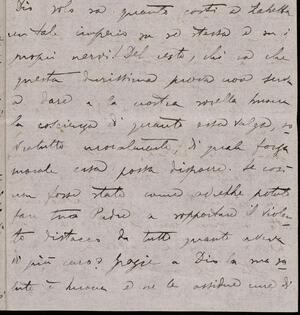 Dio solo sa quanto costi a Isabella
un tale imperio su se stessa e su i
proprii nervi! Del resto, chi sa che
questa durissima prova non serva
a dare a la nostra sorella buona
la coscienza di quanto essa valga, so-
vratutto moralmente, di qual forza
morale essa possa disporre. Se così
non fosse stato come avrebbe potuto
fare tuo Padre a sopportare il violen-
to distacco da tutti quanti aveva
di più caro? Grazie a Dio la sua sa-
lute è buona e ne le assidue cure di